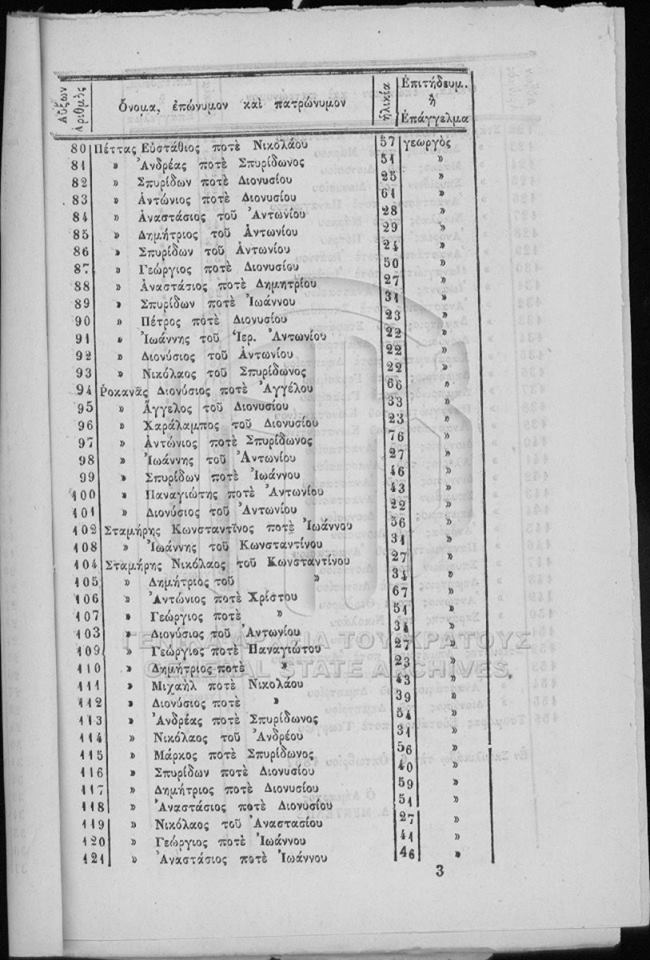 Αὔξων Ἀριθμὸς Ὄνομα, ἐπώνυμον καὶ πατρώνυμον ἡλικία Ἐπιτήδευμ. ἢ Ἐπάγγελμα
80 Πέττας Εὐστάθιος ποτὲ Νικολάου 57 γεωργὸς
81 » Ἀνδρέας ποτὲ Σπυρίδωνος 51 »
82 » Σπυρίδων ποτὲ Διονυσίου 25 »
83 » Ἀντώνιος ποτὲ Διονυσίου 61 »
84 » Ἀναστάσιος τοῦ Ἀντωνίου 28 »
85 » Δημήτριος τοῦ Ἀντωνίου 29 »
86 » Σπυρίδων τοῦ Ἀντωνίου 24 »
87 » Γεώργιος ποτὲ Διονυσίου 50 »
88 » Ἀναστάσιος ποτὲ Δημητρίου 27 »
89 » Σπυρίδων ποτὲ Ἰωάννου 31 »
90 » Πέτρος ποτὲ Διονυσίου 23 »
91 » Ἰωάννης τοῦ Ἱερ. Ἀντωνίου 22 »
92 » Διονύσιος τοῦ Ἀντωνίου 22 »
93 » Νικόλαος τοῦ Σπυρίδωνος 22 »
94 Ῥοκανᾶς Διονύσιος ποτὲ Ἀγγέλου 66 »
95 » Ἄγγελος τοῦ Διονυσίου 33 »
96 » Χαράλαμπος τοῦ Διονυσίου 23 »
97 » Ἀντώνιος ποτὲ Σπυρίδωνος 76 »
98 » Ἰωάννης τοῦ Ἀντωνίου 27 »
99 » Σπυρίδων ποτὲ Ἰωάννου 46 »
100 » Παναγιώτης ποτὲ Ἀντωνίου 43 »
101 » Διονύσιος τοῦ Ἀντωνίου 22 »
102 Σταμήρης Κωνσταντῖνος ποτὲ Ἰωάννου 56 »
108 » Ἰωάννης τοῦ Κωνσταντίνου 31 »
104 Σταμήρης Νικόλαος τοῦ Κωνσταντίνου 27 »
105 » Δημήτριος τοῦ » 34 »
106 » Ἀντώνιος ποτὲ Χρίστου 67 »
107 » Γεώργιος ποτὲ » 51 »
103 » Διονύσιος τοῦ Ἀντωνίου 34 »
109 » Γεώργιος ποτὲ Παναγιώτου 27 »
110 » Δημήτριος ποτὲ » 23 »
111 » Μιχαὴλ ποτὲ Νικολάου 43 »
112 » Διονύσιος ποτὲ » 39 »
113 » Ἀνδρέας ποτὲ Σπυρίδωνος 54 »
114 » Νικόλαος τοῦ Ἀνδρέου 31 »
115 » Μάρκος ποτὲ Σπυρίδωνος 56 »
116 » Σπυρίδων ποτὲ Διονυσίου 40 »
117 » Δημήτριος ποτὲ Διονυσίου 59 »
118 » Ἀναστάσιος ποτὲ Διονυσίου 51 »
119 » Νικόλαος τοῦ Ἀναστασίου 27 »
120 » Γεώργιος ποτὲ Ἰωάννου 41 »
121 » Ἀναστάσιος ποτὲ Ἰωάννου 46 »
3
ΓΕΝΙΚΑ ΑΡΧΕΙΑ ΤΟΥ ΚΡΑΤΟΥΣ
GENERAL STATE ARCHIVES